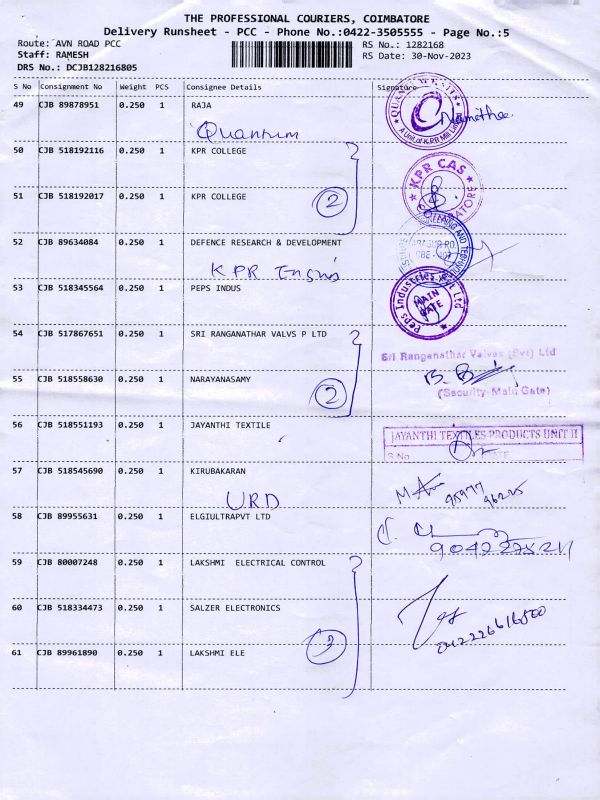 THE PROFESSIONAL COURIERS, COIMBATORE
Delivery Runsheet - PCC - Phone No.:0422-3505555 - Page No.:5
Route: AVN ROAD PCC
RS No.: 1282168
Staff: RAMESH
RS Date: 30-Nov-2023
DRS No.: DCJB128216805
S No Consignment No Weight PCS Consignee Details Signature
49 CJB 89878951 0.250 1 RAJA
Quantum
A Unit of K.P.R Mill
Namitha
50 CJB 518192116 0.250 1 KPR COLLEGE
KPR CAS
51 CJB 518192017 0.250 1 KPR COLLEGE
2
52 CJB 89634084 0.250 1 DEFENCE RESEARCH & DEVELOPMENT
KPR
53 CJB 518345564 0.250 1 PEPS INDUS
Peps Industries Pvt Ltd
MAIN GATE
54 CJB 517867651 0.250 1 SRI RANGANATHAR VALVS P LTD
Sri Ranganathar Valves (Pvt) Ltd
55 CJB 518558630 0.250 1 NARAYANASAMY
2
(Security-Main Gate)
56 CJB 518551193 0.250 1 JAYANTHI TEXTILE
JAYANTHI TEXTILES PRODUCTS UNIT II
S.No
57 CJB 518545690 0.250 1 KIRUBAKARAN
URD
58 CJB 89955631 0.250 1 ELGIULTRAPVT LTD
59 CJB 80007248 0.250 1 LAKSHMI ELECTRICAL CONTROL
60 CJB 518334473 0.250 1 SALZER ELECTRONICS
61 CJB 89961890 0.250 1 LAKSHMI ELE
3